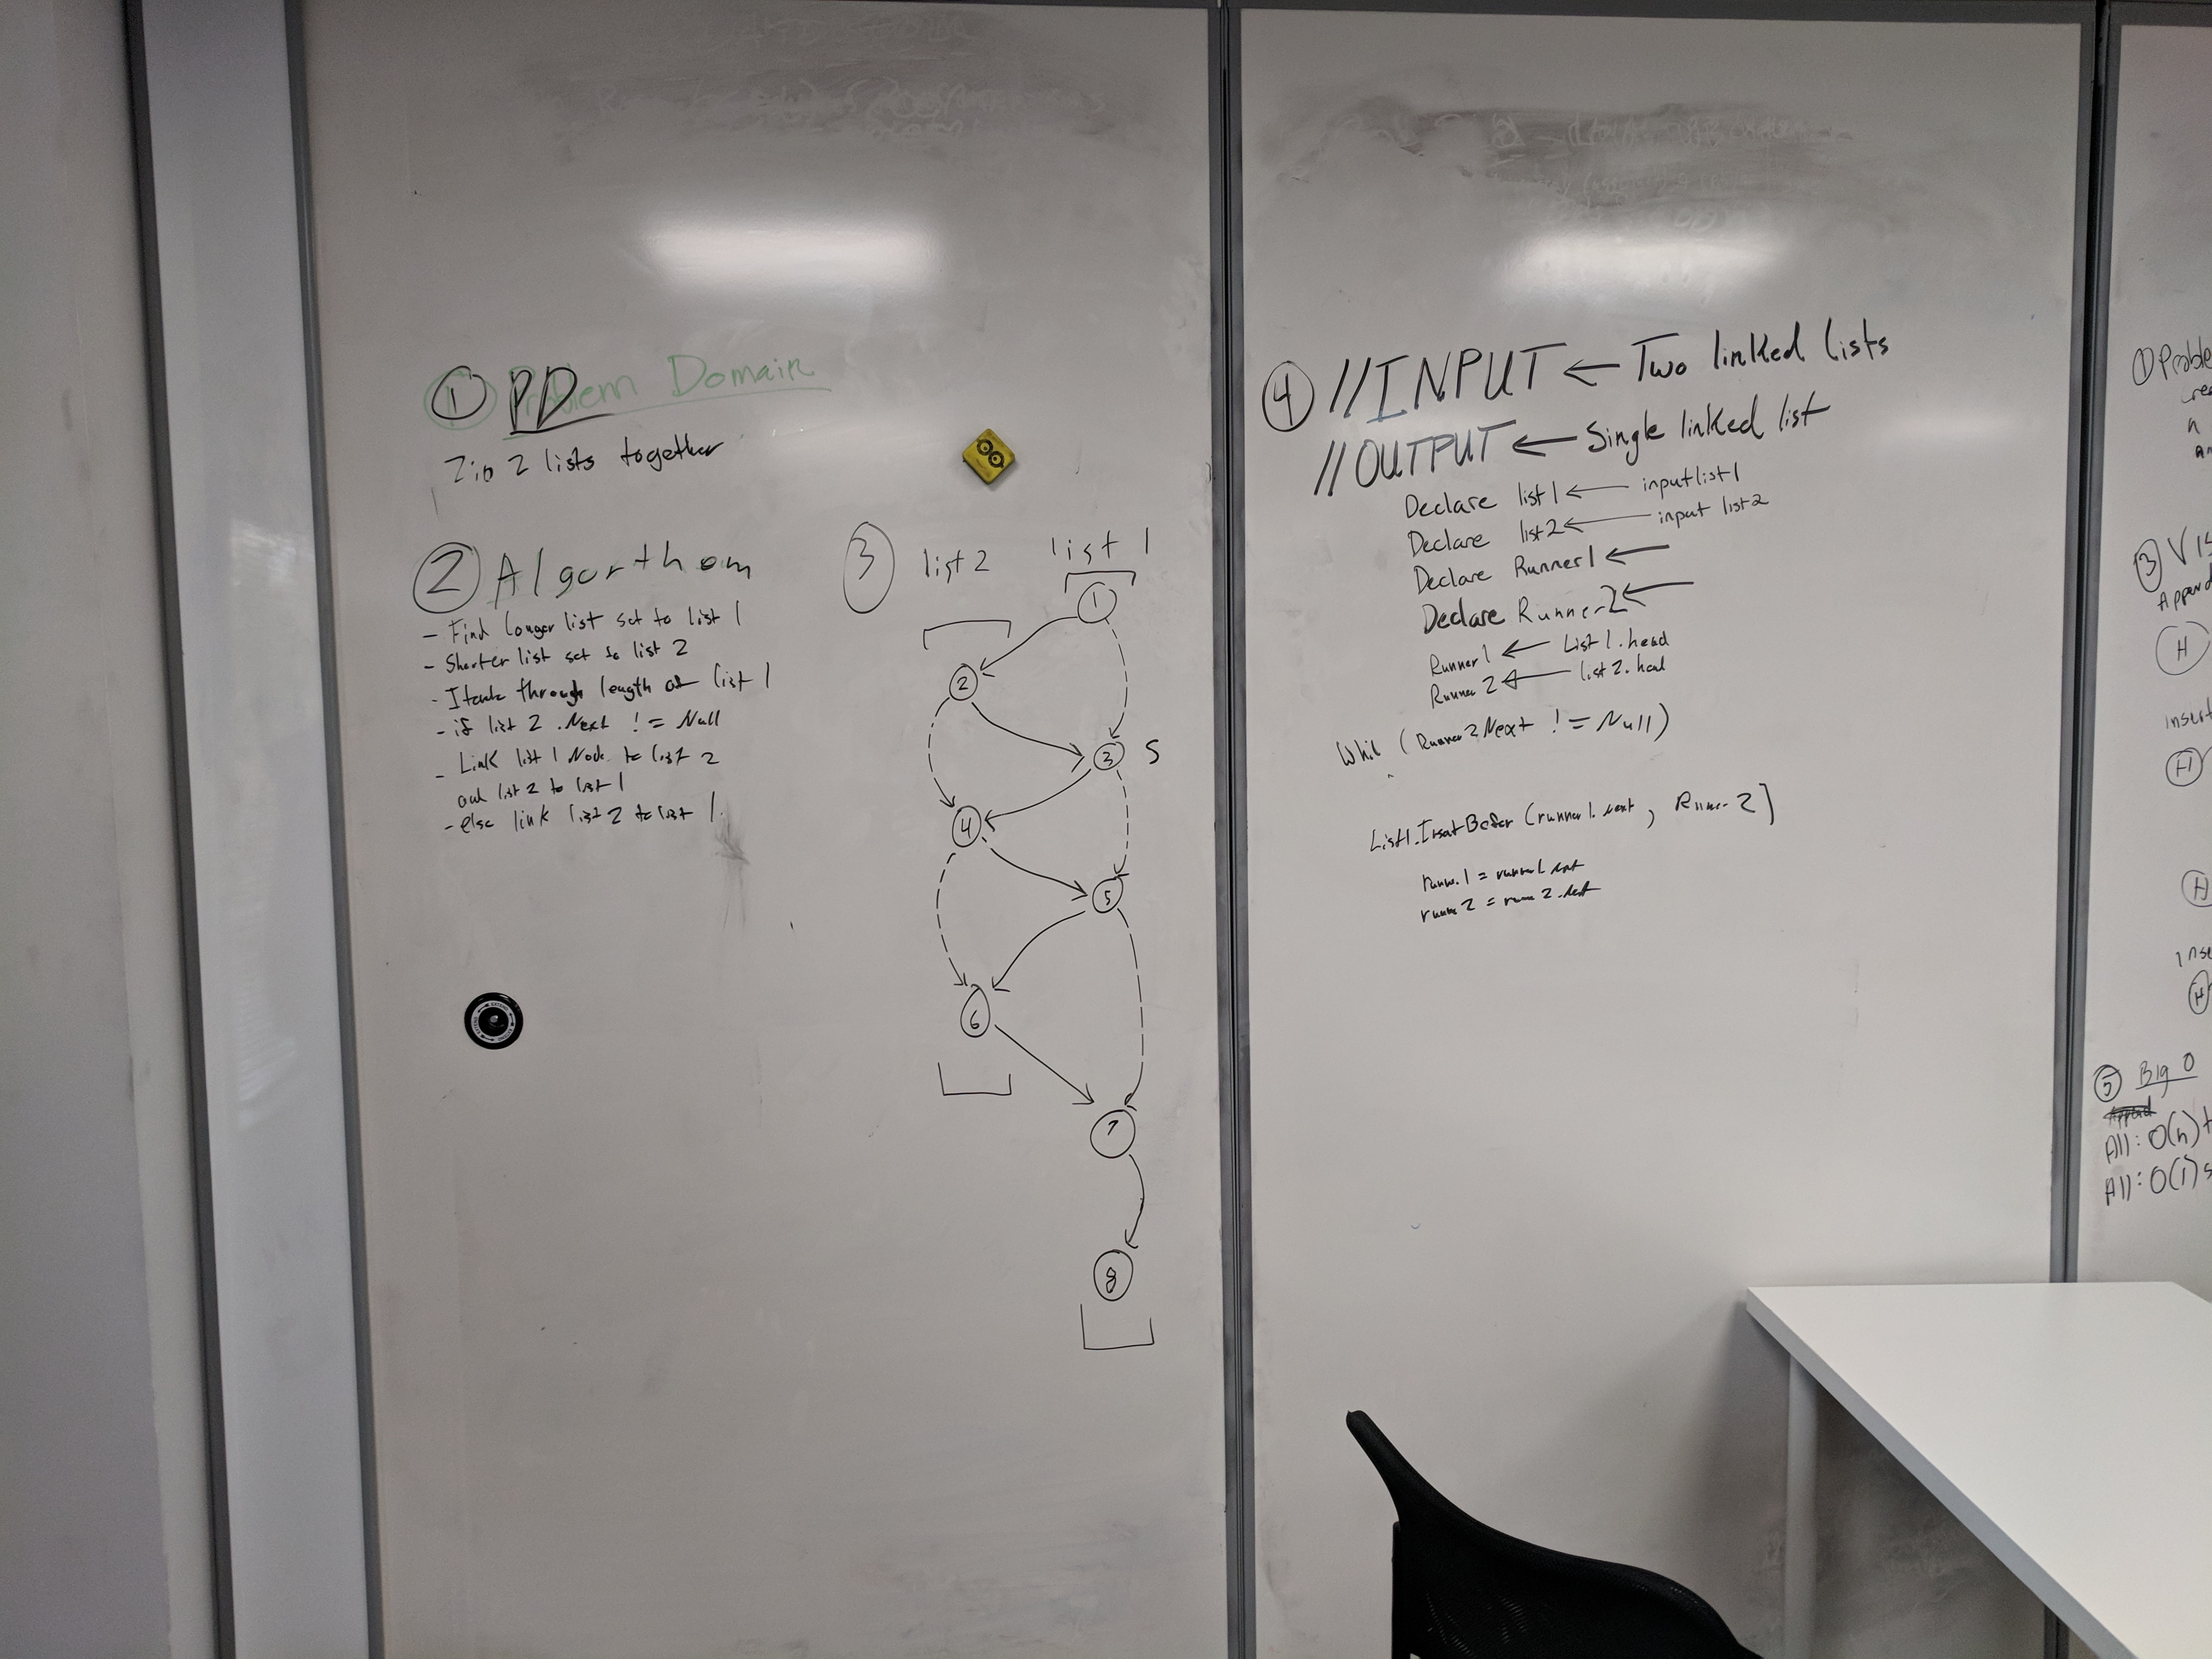 ① Problem Domain
① PD
Zip 2 lists together
② Algorthom
- Find longer list set to list 1
- Shorter list set to list 2
- Iterate through length of list 1
- if list 2 .Next != Null
- Link list 1 Node to list 2
and list 2 to list 1
- else link list 2 to list 1.
③ list 2 list 1
1
2
3 5
4
5
6
7
8
④ //INPUT ← Two linked lists
//OUTPUT ← Single linked list
Declare list1 ← input list1
Declare list2 ← input list2
Declare Runner1 ←
Declare Runner2 ←
Runner1 ← List1.head
Runner2 ← list2.head
While (Runner2Next != Null)
List1.InsertBefor (runner1.next, Runner2)
runner1 = runner1.next
runner2 = runner2.next
① Proble
n
③ Vis
Append
H
insert
H
H
inse
H
⑤ Big O
Append
All: O(n) t
All: O(1) s